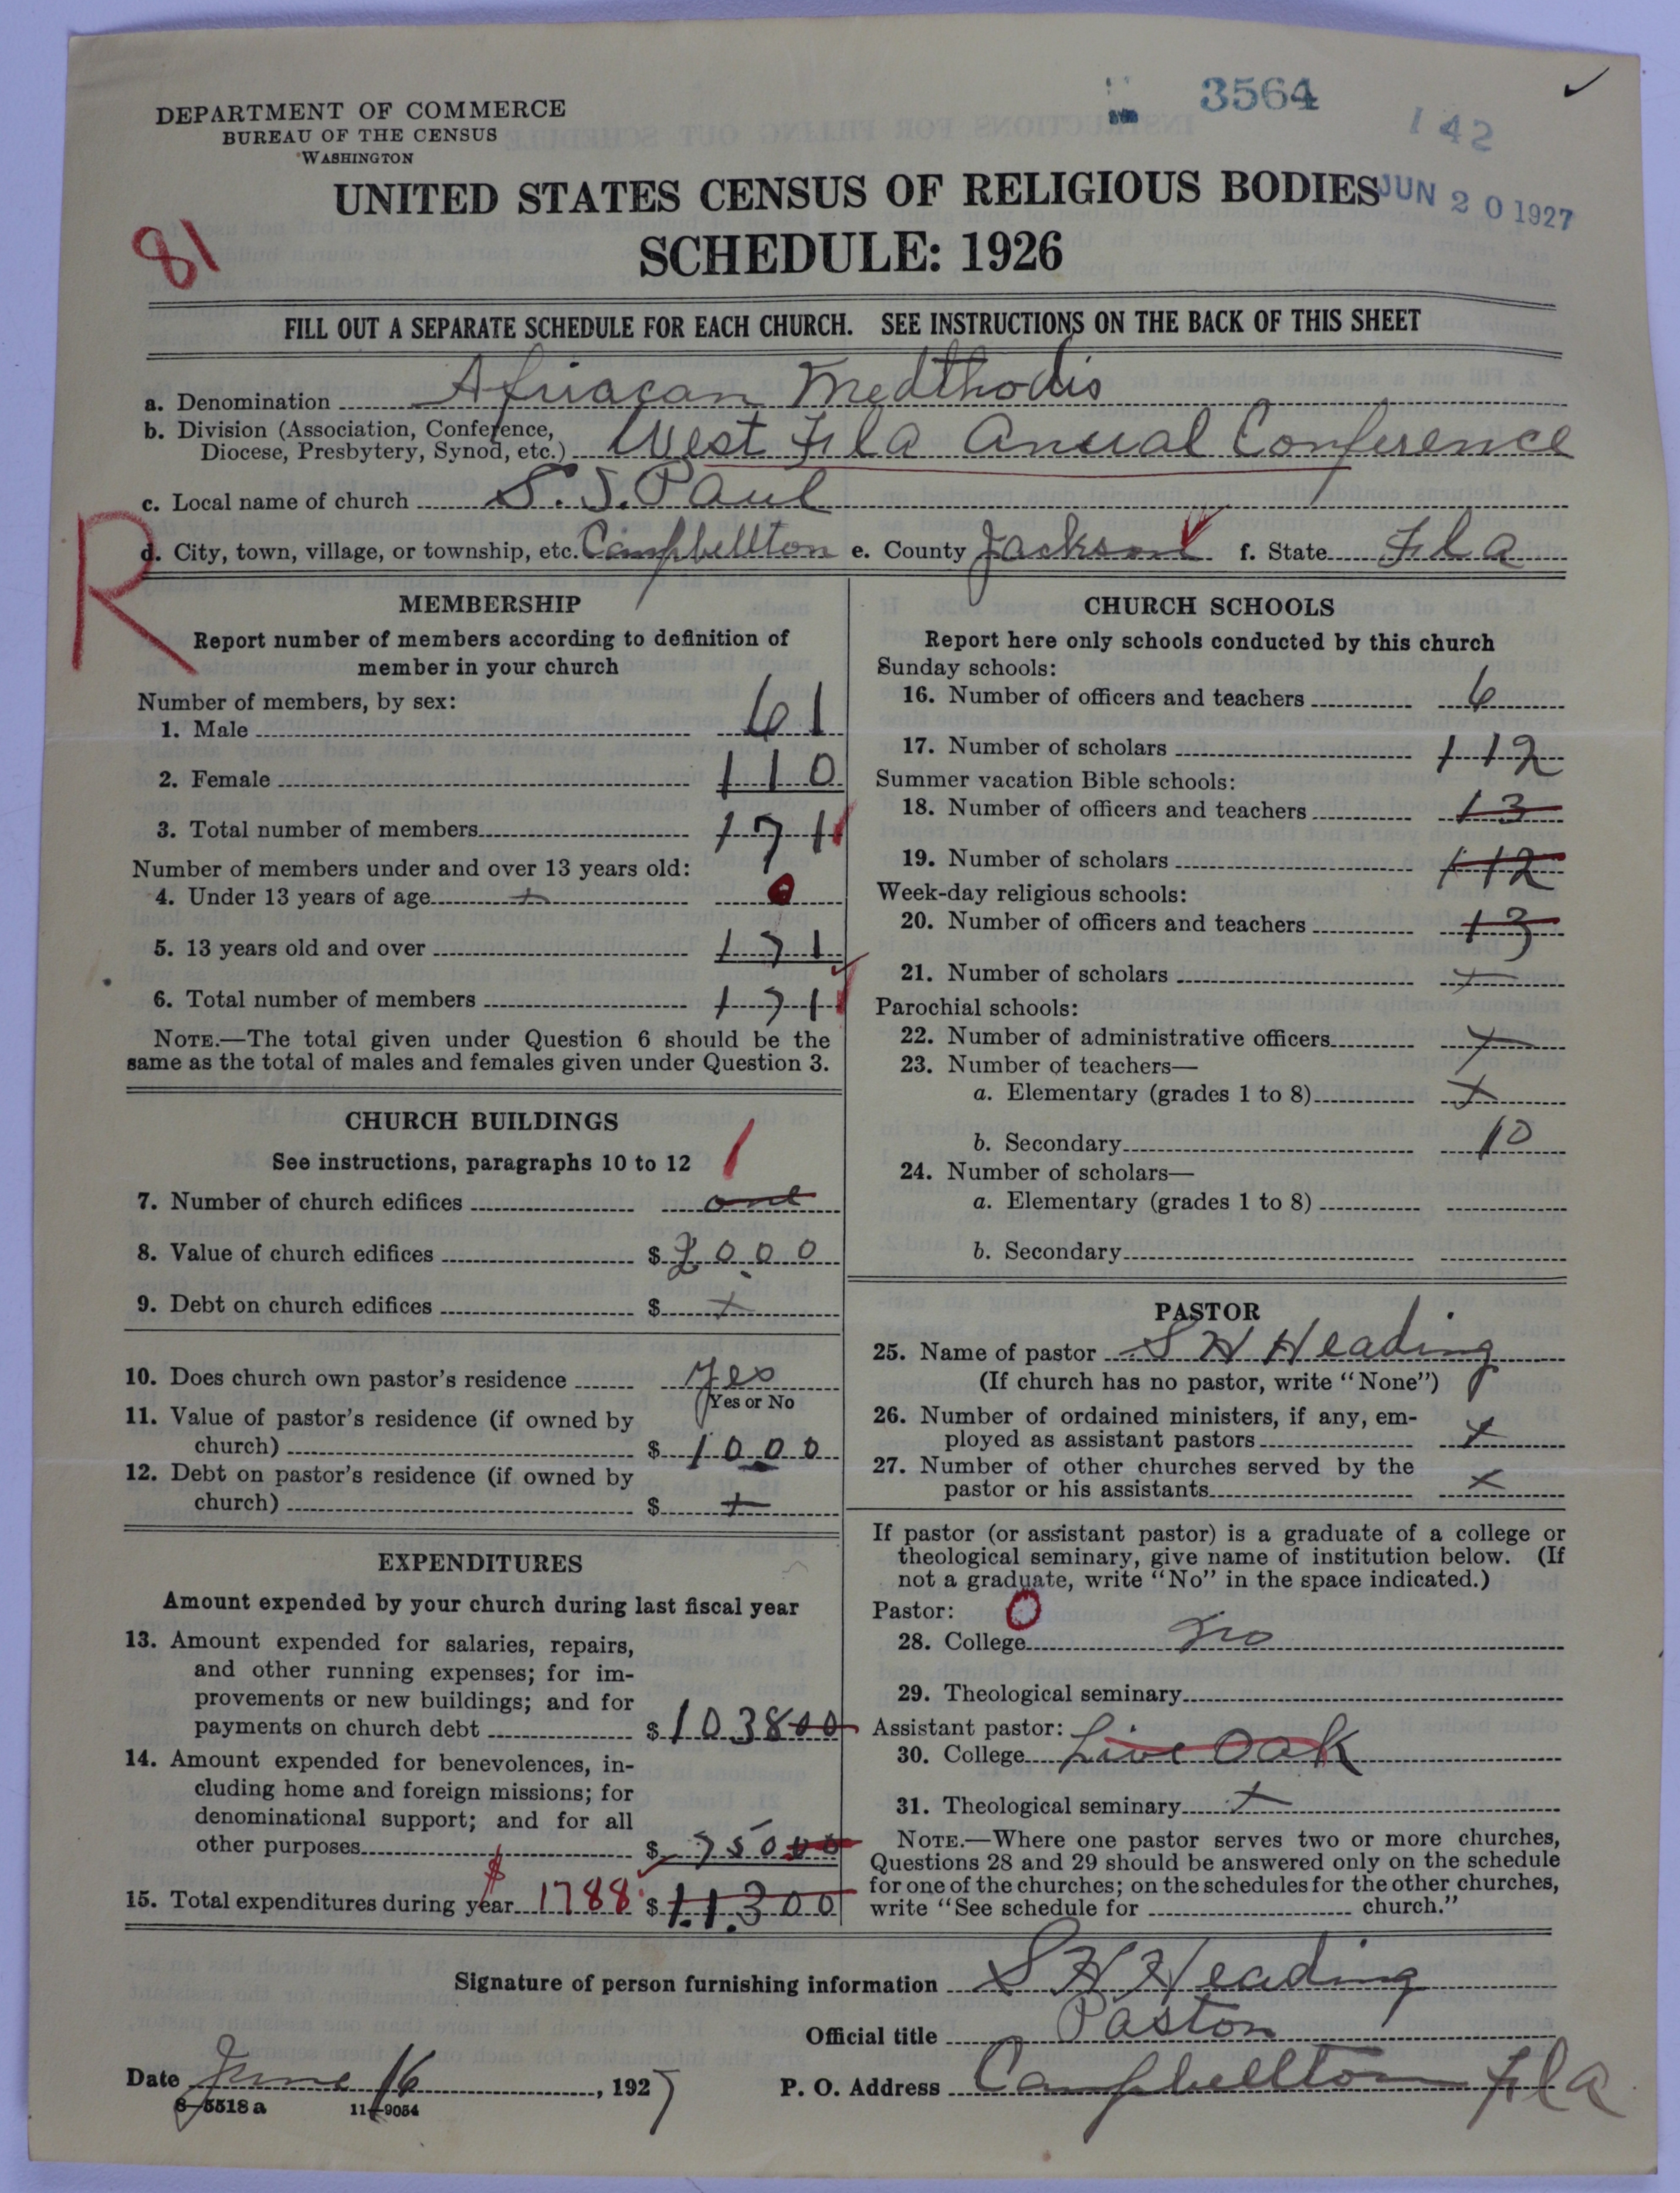 3564
142
DEPARTMENT OF COMMERCE
BUREAU OF THE CENSUS
WASHINGTON
UNITED STATES CENSUS OF RELIGIOUS BODIES
JUN 20 1927
81
SCHEDULE: 1926
FILL OUT A SEPARATE SCHEDULE FOR EACH CHURCH. SEE INSTRUCTIONS ON THE BACK OF THIS SHEET
a. Denomination Afriacan Medthodis
b. Division (Association, Conference,
Diocese, Presbytery, Synod, etc.) West Fla Anual Conference
c. Local name of church S. S. Paul
R
d. City, town, village, or township, etc. Campbellton e. County Jackson f. State Fla
MEMBERSHIP
Report number of members according to definition of
member in your church
Number of members, by sex:
1. Male 61
2. Female 110
3. Total number of members 171
Number of members under and over 13 years old:
4. Under 13 years of age + 0
5. 13 years old and over 171
6. Total number of members 171
NOTE.—The total given under Question 6 should be the
same as the total of males and females given under Question 3.
CHURCH BUILDINGS
See instructions, paragraphs 10 to 12 1
7. Number of church edifices one
8. Value of church edifices $ 2000
9. Debt on church edifices $ +
10. Does church own pastor's residence yes
Yes or No
11. Value of pastor's residence (if owned by
church) $ 1000
12. Debt on pastor's residence (if owned by
church) $ +
EXPENDITURES
Amount expended by your church during last fiscal year
13. Amount expended for salaries, repairs,
and other running expenses; for im-
provements or new buildings; and for
payments on church debt $ 103800
14. Amount expended for benevolences, in-
cluding home and foreign missions; for
denominational support; and for all
other purposes $ 75000
15. Total expenditures during year $1788 $ 11300
CHURCH SCHOOLS
Report here only schools conducted by this church
Sunday schools:
16. Number of officers and teachers 6
17. Number of scholars 112
Summer vacation Bible schools:
18. Number of officers and teachers 13
19. Number of scholars 112
Week-day religious schools:
20. Number of officers and teachers 13
21. Number of scholars +
Parochial schools:
22. Number of administrative officers +
23. Number of teachers—
a. Elementary (grades 1 to 8) +
b. Secondary 10
24. Number of scholars—
a. Elementary (grades 1 to 8)
b. Secondary
PASTOR
25. Name of pastor S H Heading
(If church has no pastor, write "None")
26. Number of ordained ministers, if any, em-
ployed as assistant pastors +
27. Number of other churches served by the
pastor or his assistants x
If pastor (or assistant pastor) is a graduate of a college or
theological seminary, give name of institution below. (If
not a graduate, write "No" in the space indicated.)
Pastor: 0
28. College no
29. Theological seminary
Assistant pastor:
30. College Live Oak
31. Theological seminary +
NOTE.—Where one pastor serves two or more churches,
Questions 28 and 29 should be answered only on the schedule
for one of the churches; on the schedules for the other churches,
write "See schedule for church."
Signature of person furnishing information S H Heading
Official title Paston
Date June 16, 1927
P. O. Address Campbellton Fla
8-5518 a 11-9054